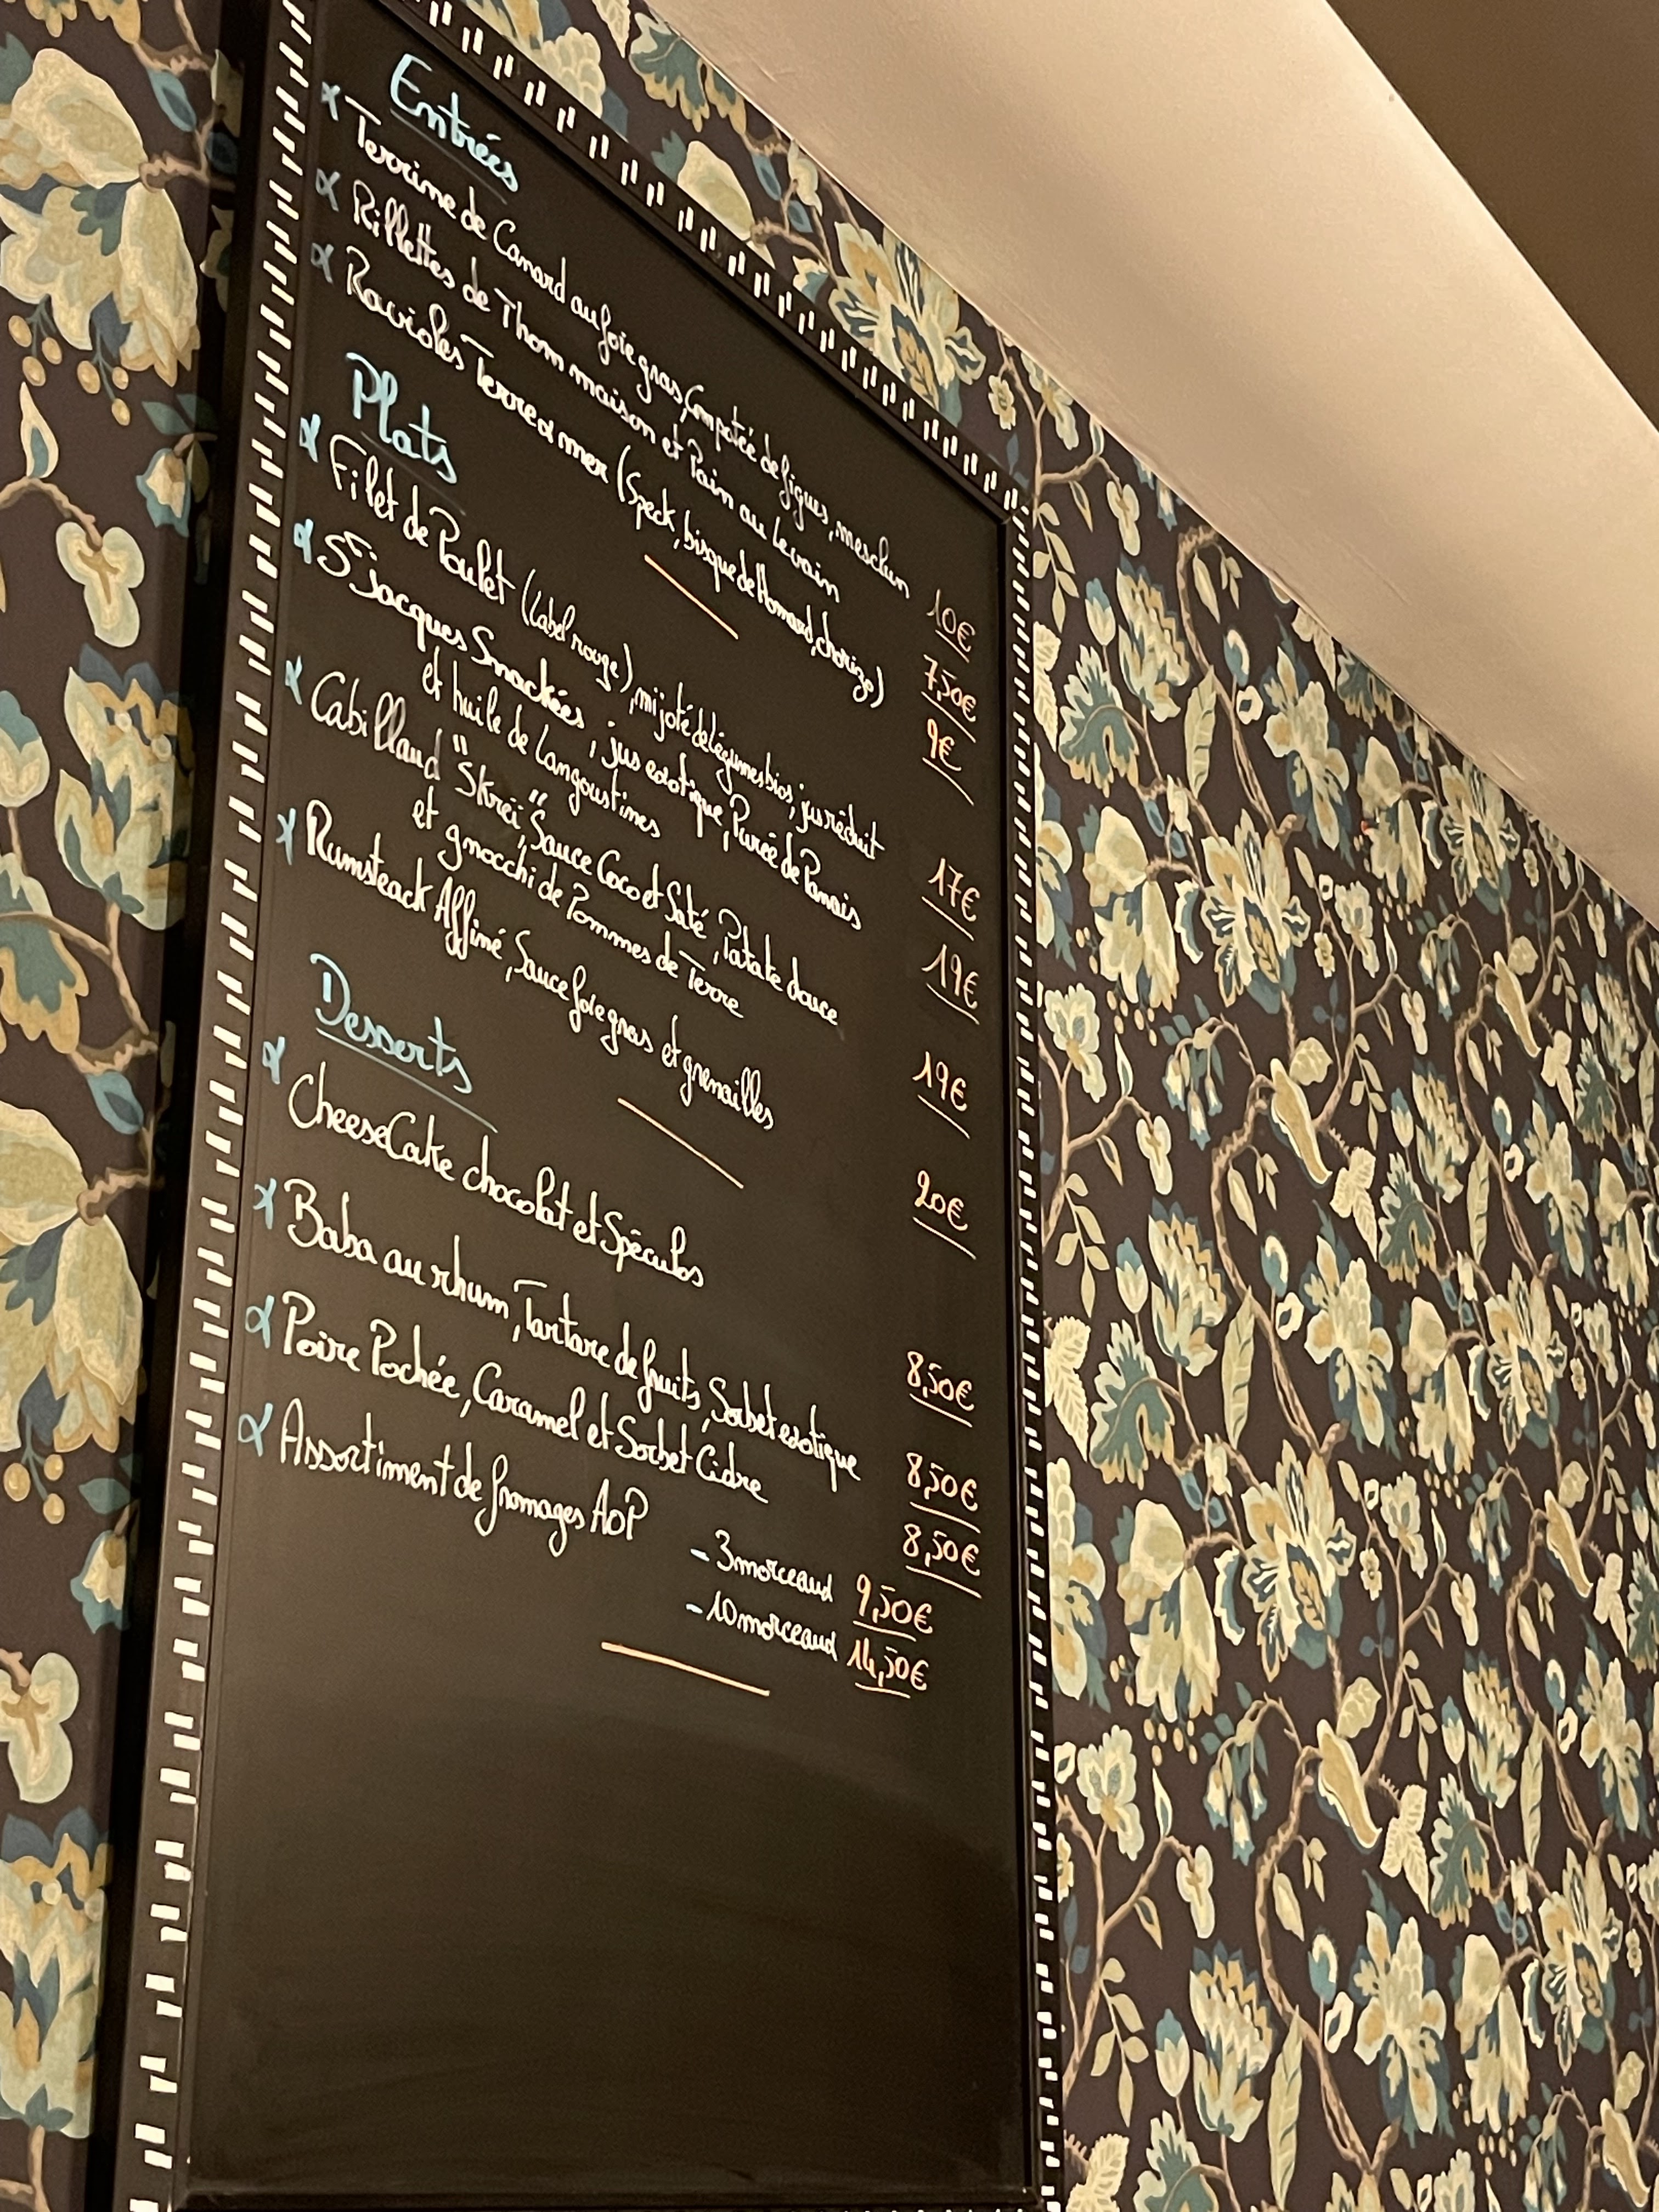 Entrées
Terrine de Canard au foie gras, Compotée de figues, mesclun 10€
Rillettes de Thon maison et Pain au levain 7,50€
Ravioles Terre & mer (Speck, bisque de Homard, chorizo) 9€
Plats
Filet de Poulet (Label rouge), mijoté de légumes bios, jus réduit 17€
St Jacques Snackées, jus exotique, Purée de Panais
et huile de Langoustines 19€
Cabillaud "Skreï", Sauce Coco et Saté, Patate douce
et gnocchi de Pommes de Terre 19€
Rumsteack Affiné, Sauce foie gras et grenailles 20€
Desserts
CheeseCake chocolat et Spéculos 8,50€
Baba au rhum, Tartare de fruits, Sorbet exotique 8,50€
Poire Pochée, Caramel et Sorbet Cidre 8,50€
Assortiment de fromages AOP
- 3 morceaux 9,50€
- 10 morceaux 14,50€